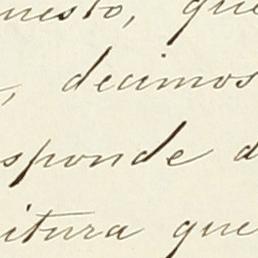 nesto, que
, decimos
sponde d
itura que